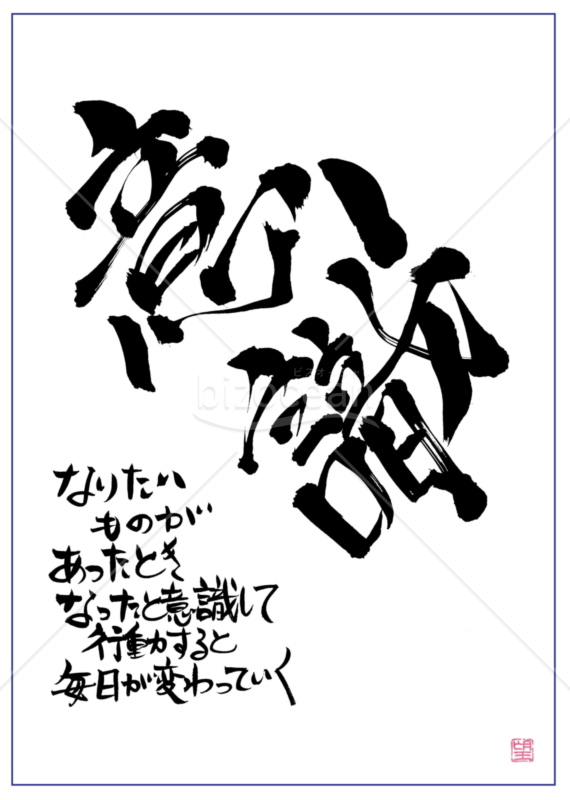 意識
ビズオーシャン
bizocean
なりたい
ものが
あったとき
なったと意識して
行動すると
毎日が変わっていく
望